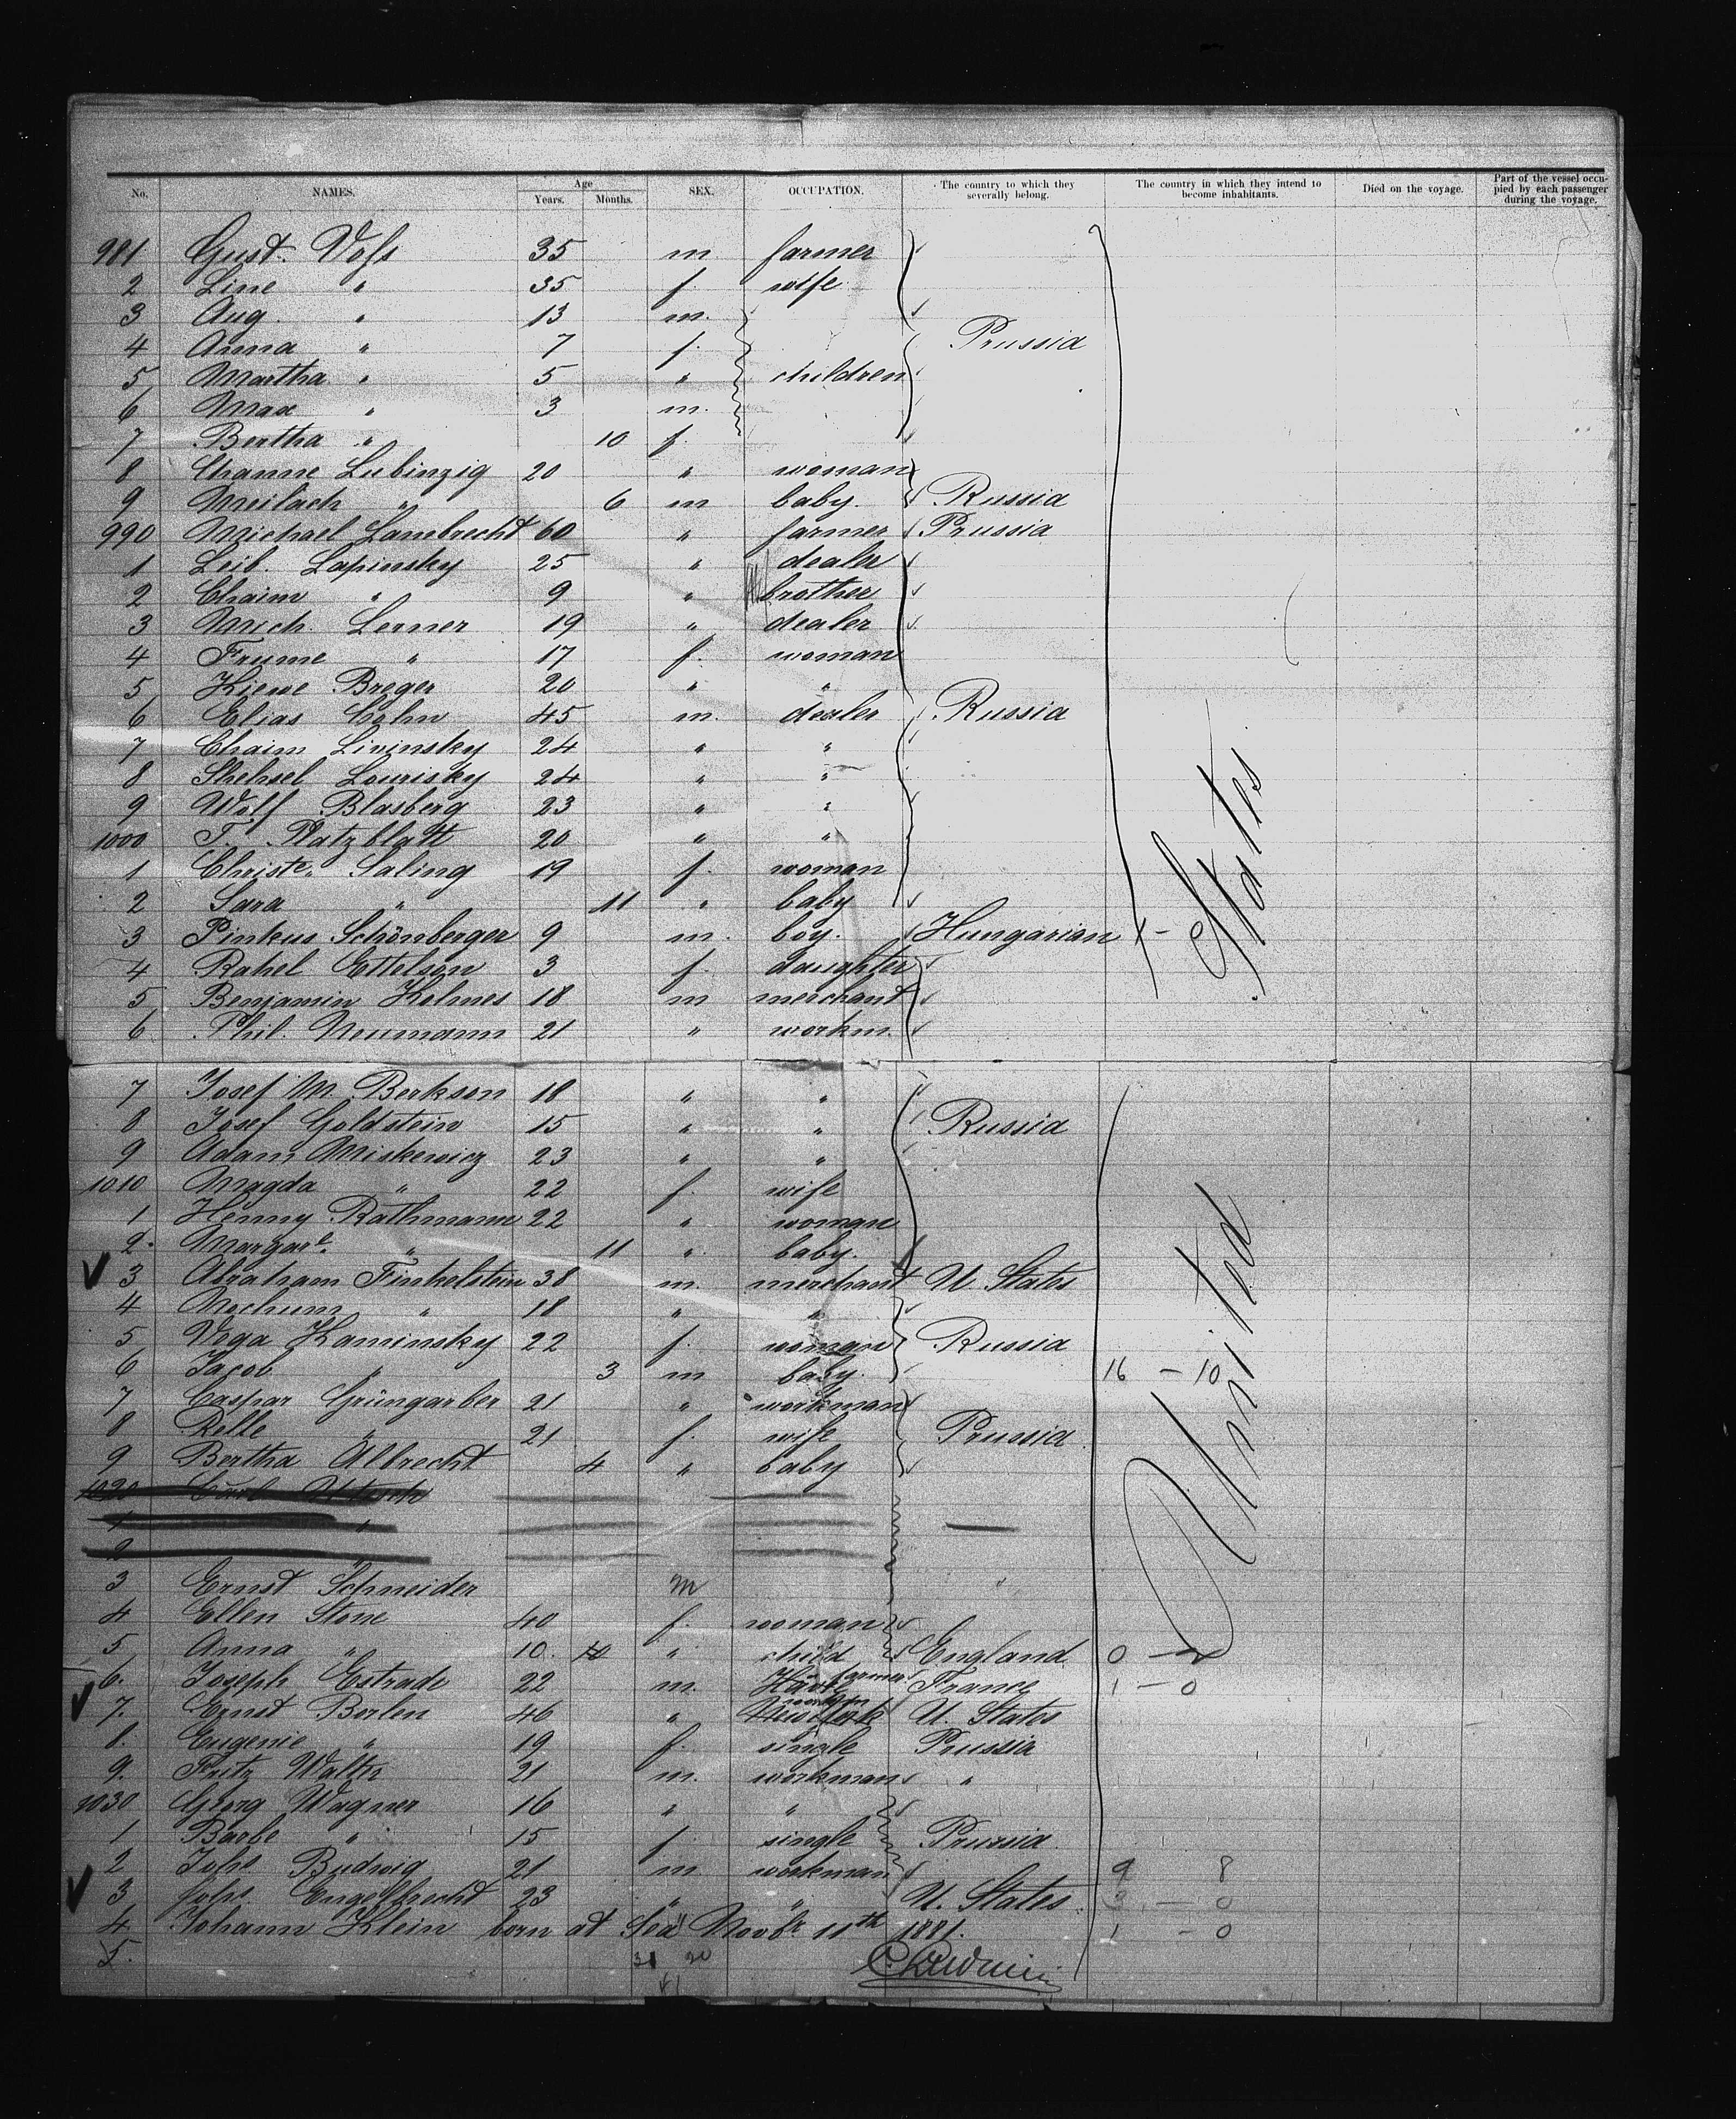 No. NAMES. Age Years. Months. SEX. OCCUPATION. The country to which they severally belong. The country in which they intend to become inhabitants. Died on the voyage. Part of the vessel occupied by each passenger during the voyage.
981 Gust. Vofs 35 m farmer
2 Line " 35 f. wife
3 Aug. " 13 m.
4 Anna " 7 f. Prussia
5 Martha " 5 " children
6 Max " 3 m.
7 Bertha " 10 f.
8 Channe Lubinzig 20 " woman
9 Meilach " 6 m baby. Russia
990 Michael Lambrecht 60 " farmer Prussia
1 Leib. Lapinsky 25 " dealer
2 Chaim " 9 " brother
3 Mich. Lerner 19 " dealer
4 Frume " 17 f. woman
5 Kiewe Breger 20 " "
6 Elias Cohn 45 m. dealer Russia
7 Chaim Livinsky 24 " "
8 Lourisky 24 " "
9 Wolf Blasberg 23 " "
1000 T. Platzblatt 20 " "
1 Christe. Saling 19 f. woman
2 Sara " 11 " baby
3 Pinkus Schönberger 9 m. boy. Hungarian 1 - 0
4 Rahel Ettelson 3 f. daughter
5 Benjamin Holmes 18 m merchant
6 Phil. Neumann 21 " workm.
7 Josef M. Berkson 18 " "
8 Josef Goldstein 15 " " Russia
9 Adam Miskewicz 23 " "
1010 Magda " 22 f. wife
1 Henny Rathmann 22 " woman
2 Margare. " 11 " baby.
3 Abraham Finkelstein 38 m. merchant U. States
4 Nochum " 18 " "
5 Vega Kaminsky 22 f. woman Russia
6 Jacob " 3 m baby. 16 - 10
7 Caspar Grüngarber 21 " workman
8 Relle " 21 f. wife Prussia
9 Bertha Albrecht 4 " baby
1020 Carl
1 "
2 "
3 Ernst Schneider m
4 Ellen Stone 40 f. woman
5 Anna " 10. " child England 0 - 2
6. Joseph Estrade 22 m. farmer France 1 - 0
7. Ernst Berlen 46 " workm U. States
8. Eugenie " 19 f. single Prussia
9. Fritz Walter 21 m. workman "
1030 Georg Wagner 16 " "
1 Barbe " 15 f. single Prussia
2 Johs Budwig 21 m. workman 9 8
3 Johs. Engelbrecht 23 " " U. States 3 - 0
4 Johann Klein born at Sea Novbr. 11th 1881. 1 - 0
5.
31 20
United States